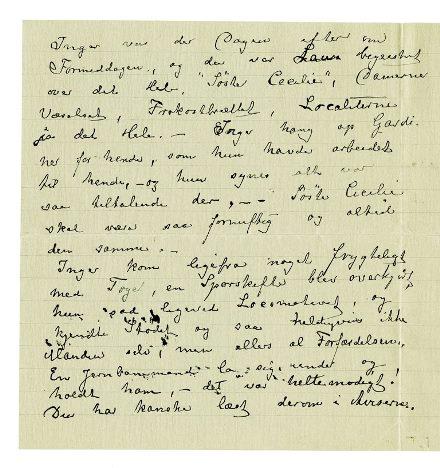 Inger var der Dagen efter om
Formiddagen, og der var hun begeistret
over det Hele. "Søster Cecilie", Damerne
Værelset, Frokostbrettet, Localiterne
ja det Hele. — Inger hang op Gardi-
ner for hende, som hun havde arbeidet
til hende, — og hun synes alt var
saa tiltalende der, — — Søster Cecilie
skal være saa fornuftig og altid
den samme. —
Inger kom ligefra noget frygteligt
med Toget, en Sporskifter blev overkjørt,
hun sad ligeved Locomotivet, og
kjendte Stødet og saa heldigvis ikke
Manden selv, men allers al Forfærdelsen,
En Jernbanemand la sig under og
holdt ham, — det var heltemodigt!
Du har kanske læst derom i Aviserne.